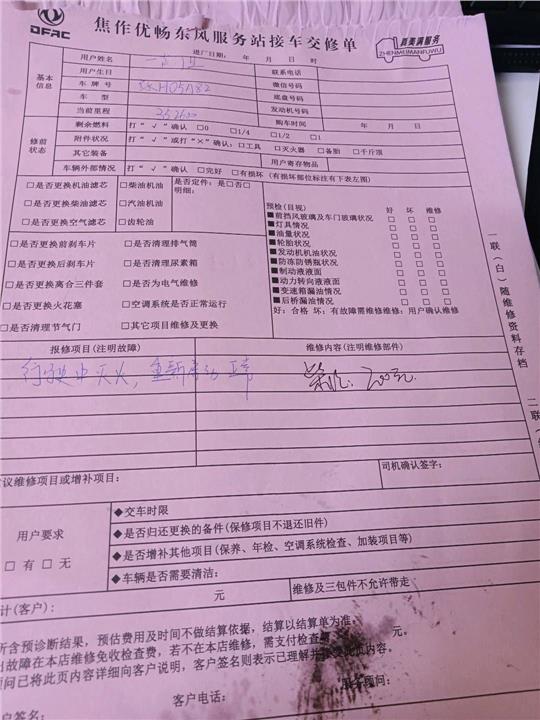 DFAC
焦作优畅东风服务站接车交修单
真美满服务
ZHENMEIMANFUWU
进厂日期： 年 月 日 时
基本信息
用户姓名
联系电话
用户生日
微信号码
车 牌 号
底盘号码
车 型
发动机号码
当前里程
252600
购车时间 年 月 日
修前状态
剩余燃料 打“√”确认 □0 □1/4 □1/2 □1
附件状况 打“√”或打“×”确认：□工具 □灭火器 □备胎 □千斤顶
其它装备
用户寄存物品
车辆外部情况 打“√”确认 □完好 □有损坏（有损部位标注有下表左图）
□是否更换机油滤芯 □柴油机油 是否定件：是□否□
□是否更换柴油滤芯 □汽油机油 明细：
□是否更换空气滤芯 □齿轮油
预检(目视) 好 坏 维修
■前挡风玻璃及车门玻璃状况 □ □ □
■灯具情况 □ □ □
■油量状况 □ □ □
■轮胎状况 □ □ □
■发动机机油状况 □ □ □
■防冻防锈瓶状况 □ □ □
■制动液液面 □ □ □
■动力转向液液面 □ □ □
■变速箱漏油情况 □ □ □
■后桥漏油情况 □ □ □
好：合格 坏：有故障需维修维修：用户确认维修
□是否更换前刹车片 □是否清理排气筒
□是否更换后刹车片 □是否清理尿素箱
□是否更换离合三件套 □是否为电气维修
□是否更换火花塞 □空调系统是否正常运行
□是否清理节气门 □其它项目维修及更换
报修项目(注明故障) 维修内容(注明维修部件)
行驶中灭火，重新启动正常
200元
议维修项目或增补项目：
司机确认签字：
用户要求
□有 □无
◆交车时限
◆是否归还更换的备件(保修项目不退还旧件)
◆是否增补其他项目(保养、年检、空调系统检查、加装项目等)
◆车辆是否需要清洁：
计(客户)： 元
维修及三包件不允许带走
所含预诊断结果，预估费用及时间不做结算依据，结算以结算单为准。
出故障在本店维修免收检查费，若不在本店维修，需支付检查 元。
顾问已将此页内容详细向客户说明，客户签名则表示已理解并 此页内容。
服务顾问：
客户电话：
户签名：
一联（白）随维修资料存档
二联